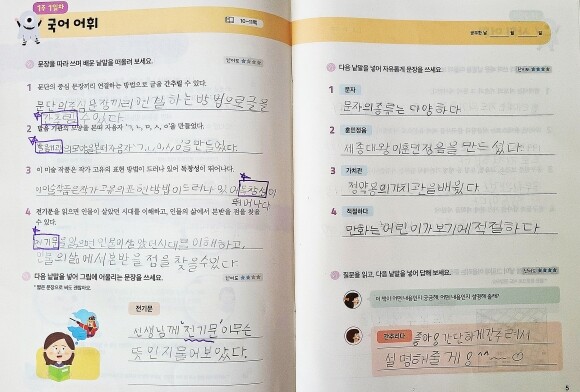 1주 1일차
국어 어휘
10~11쪽
문장을 따라 쓰며 배운 낱말을 떠올려 보세요.
난이도 ★★★★
1 문단의 중심 문장끼리 연결하는 방법으로 글을 간추릴 수 있다.
문단의 중심 문장끼리 연결하는 방법으로 글을
간추릴 수 있다
2 발음 기관의 모양을 본떠 자음자 'ㄱ, ㄴ, ㅁ, ㅅ, ㅇ'을 만들었다.
발음기관의 모양을 본떠 자음자 'ㄱ,ㄴ,ㅁ,ㅅ,ㅇ'을 만들었다
3 이 미술 작품은 작가 고유의 표현 방법이 드러나 있어 독창성이 뛰어나다.
이 미술 작품은 작가 고유의 표현 방법이 드러나 있어 독창성이
뛰어나다
4 전기문을 읽으면 인물이 살았던 시대를 이해하고, 인물의 삶에서 본받을 점을 찾을
수 있다.
전기문을 읽으면 인물이 살았던 시대를 이해하고,
인물의 삶에서 본받을 점을 찾을 수 있다
다음 낱말을 넣어 그림에 어울리는 문장을 쓰세요.
난이도 ★★★★
* 짧은 문장으로 써도 괜찮아요.
전기문
선생님께 "전기문"이 무슨
뜻인지 물어보았다.
공부한 날 월 일
다음 낱말을 넣어 자유롭게 문장을 쓰세요.
난이도 ★★★★
1 문자
문자의 종류는 다양하다
2 훈민정음
세종대왕이 훈민정음을 만드셨다
3 가치관
정약용의 가치관을 배웠다
4 적절하다
만화는 어린이가 보기에 적절하다
질문을 읽고, 다음 낱말을 넣어 답해 보세요.
난이도 ★★★★
이 책이 어떤 내용인지 궁금해. 어떤 내용인지 설명해 줄래?
간추리다
좋아용 간단하게 간추려서
설명해줄게용^^~
5